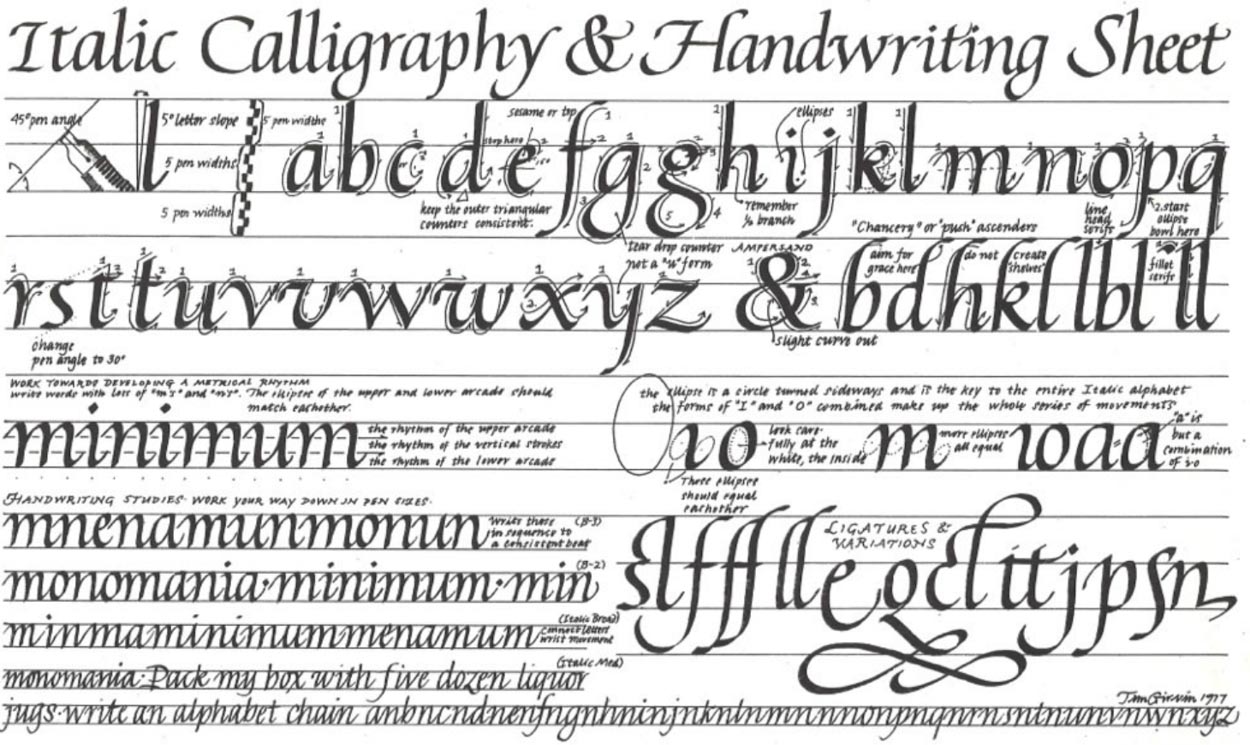 Italic Calligraphy & Handwriting Sheet
45° pen angle
5° letter slope
5 pen widths
5 pen widths
5 pen widths
sesame or top
stop here
ellipses
a b c d e f g g h i j k l m n o p q
keep the outer triangular
counters consistent.
remember
½ branch
"Chancery" or "push" ascenders
line
head
serifs
2. start
ellipse
bowl here
tear drop counter
not a "u" form
AMPERSAND
aim for
grace here
do not create
"shelves"
fillet
serifs
r s t t u v v w w x y z & b d h k l l b l l l
change
pen angle to 30°
slight curve out
WORK TOWARDS DEVELOPING A METRICAL RHYTHM
write words with lots of "m's" and "n's". The ellipses of the upper and lower arcade should
match eachother.
the ellipse is a circle turned sideways and is the key to the entire Italic alphabet
the forms of "I" and "O" combined make up the whole series of movements
minimum
the rhythm of the upper arcade
the rhythm of the vertical strokes
the rhythm of the lower arcade
ıo
look care-
fully at the
white, the inside
m
more ellipses
all equal
ıoaa
"a" is
but a
combination
of ıo
Three ellipses
should equal
eachother
HANDWRITING STUDIES· WORK YOUR WAY DOWN IN PEN SIZES·
mnenamunmonun
write these
in sequence to
a consistent beat
(B-3)
LIGATURES &
VARIATIONS
monomania·minimum·min
(B-2)
minmaminimummenamum
(Italic Broad)
connect letters
wrist movement
monomania·Pack my box with five dozen liquor
(Italic Med)
jugs·write an alphabet chain anbncndnenfngnhninjnknlnmnnnonpnqnrnsntnunvnwnxyz
Tim Girvin 1977